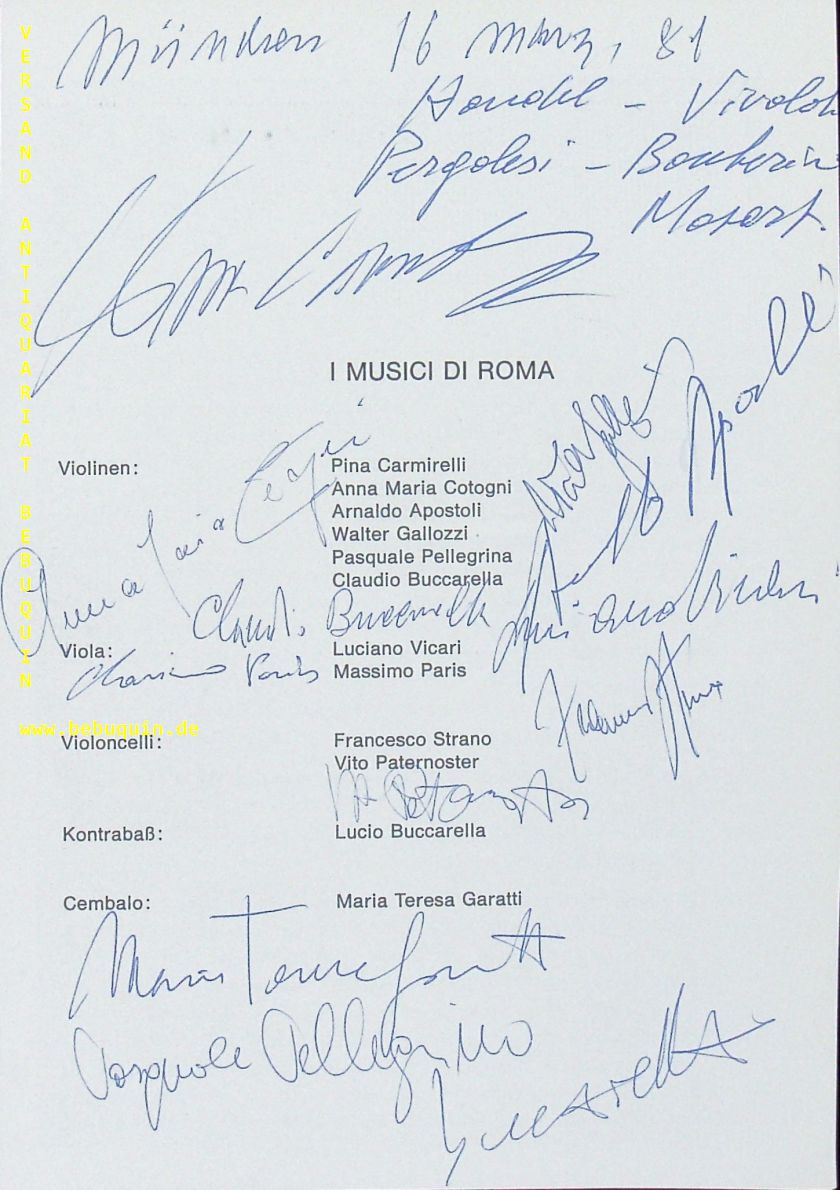 München 16 März, 81
Handel - Vivaldi
Pergolesi - Boccherini
Mozart.
I MUSICI DI ROMA
Violinen:
Pina Carmirelli
Anna Maria Cotogni
Arnaldo Apostoli
Walter Gallozzi
Pasquale Pellegrina
Claudio Buccarella
Anna Maria Cotogni
Arnaldo Apostoli
Claudio Buccarella
Luciano Vicari
Viola:
Luciano Vicari
Massimo Paris
Massimo Paris
Francesco Strano
Violoncelli:
Francesco Strano
Vito Paternoster
Vito Paternoster
Kontrabaß:
Lucio Buccarella
Cembalo:
Maria Teresa Garatti
Maria Teresa Garatti
Pasquale Pellegrino
Buccarella
VERSAND ANTIQUARIAT BEBUQUIN
www.bebuquin.de